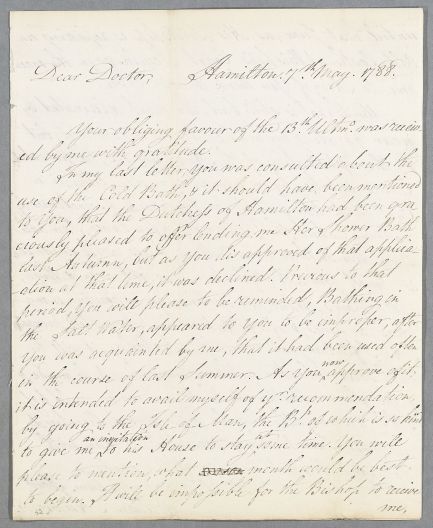 Dear Doctor, Hamilton, 7th May. 1788.
Your obliging favour of the 13th Ultmo. was receiv-
ed by me with gratitude.
In my last letter, You was consulted about the
use of the Cold Bath, & it should have been mentioned
to You, that the Dutchess of Hamilton had been gra
ciously pleased to offer lending me Her Shower Bath
last Autumn, but as You dis approved of that applica-
tion at that time, it was declined. Previous to that
period, You will please to be reminded, Bathing in
the Salt Water, appeared to You to be improper, after
You was acquainted by me, that it had been used often
in the course of last Summer. As You now approve of it,
it is intended to avail myself of yr. recommendation,
by going to the Isle of Man, the Bp. of which is so kind
to give me an invitation to his House to stay at some time. You will
please to mention, what month would be best
to begin. It will be impossible for the Bishop to receive
me,